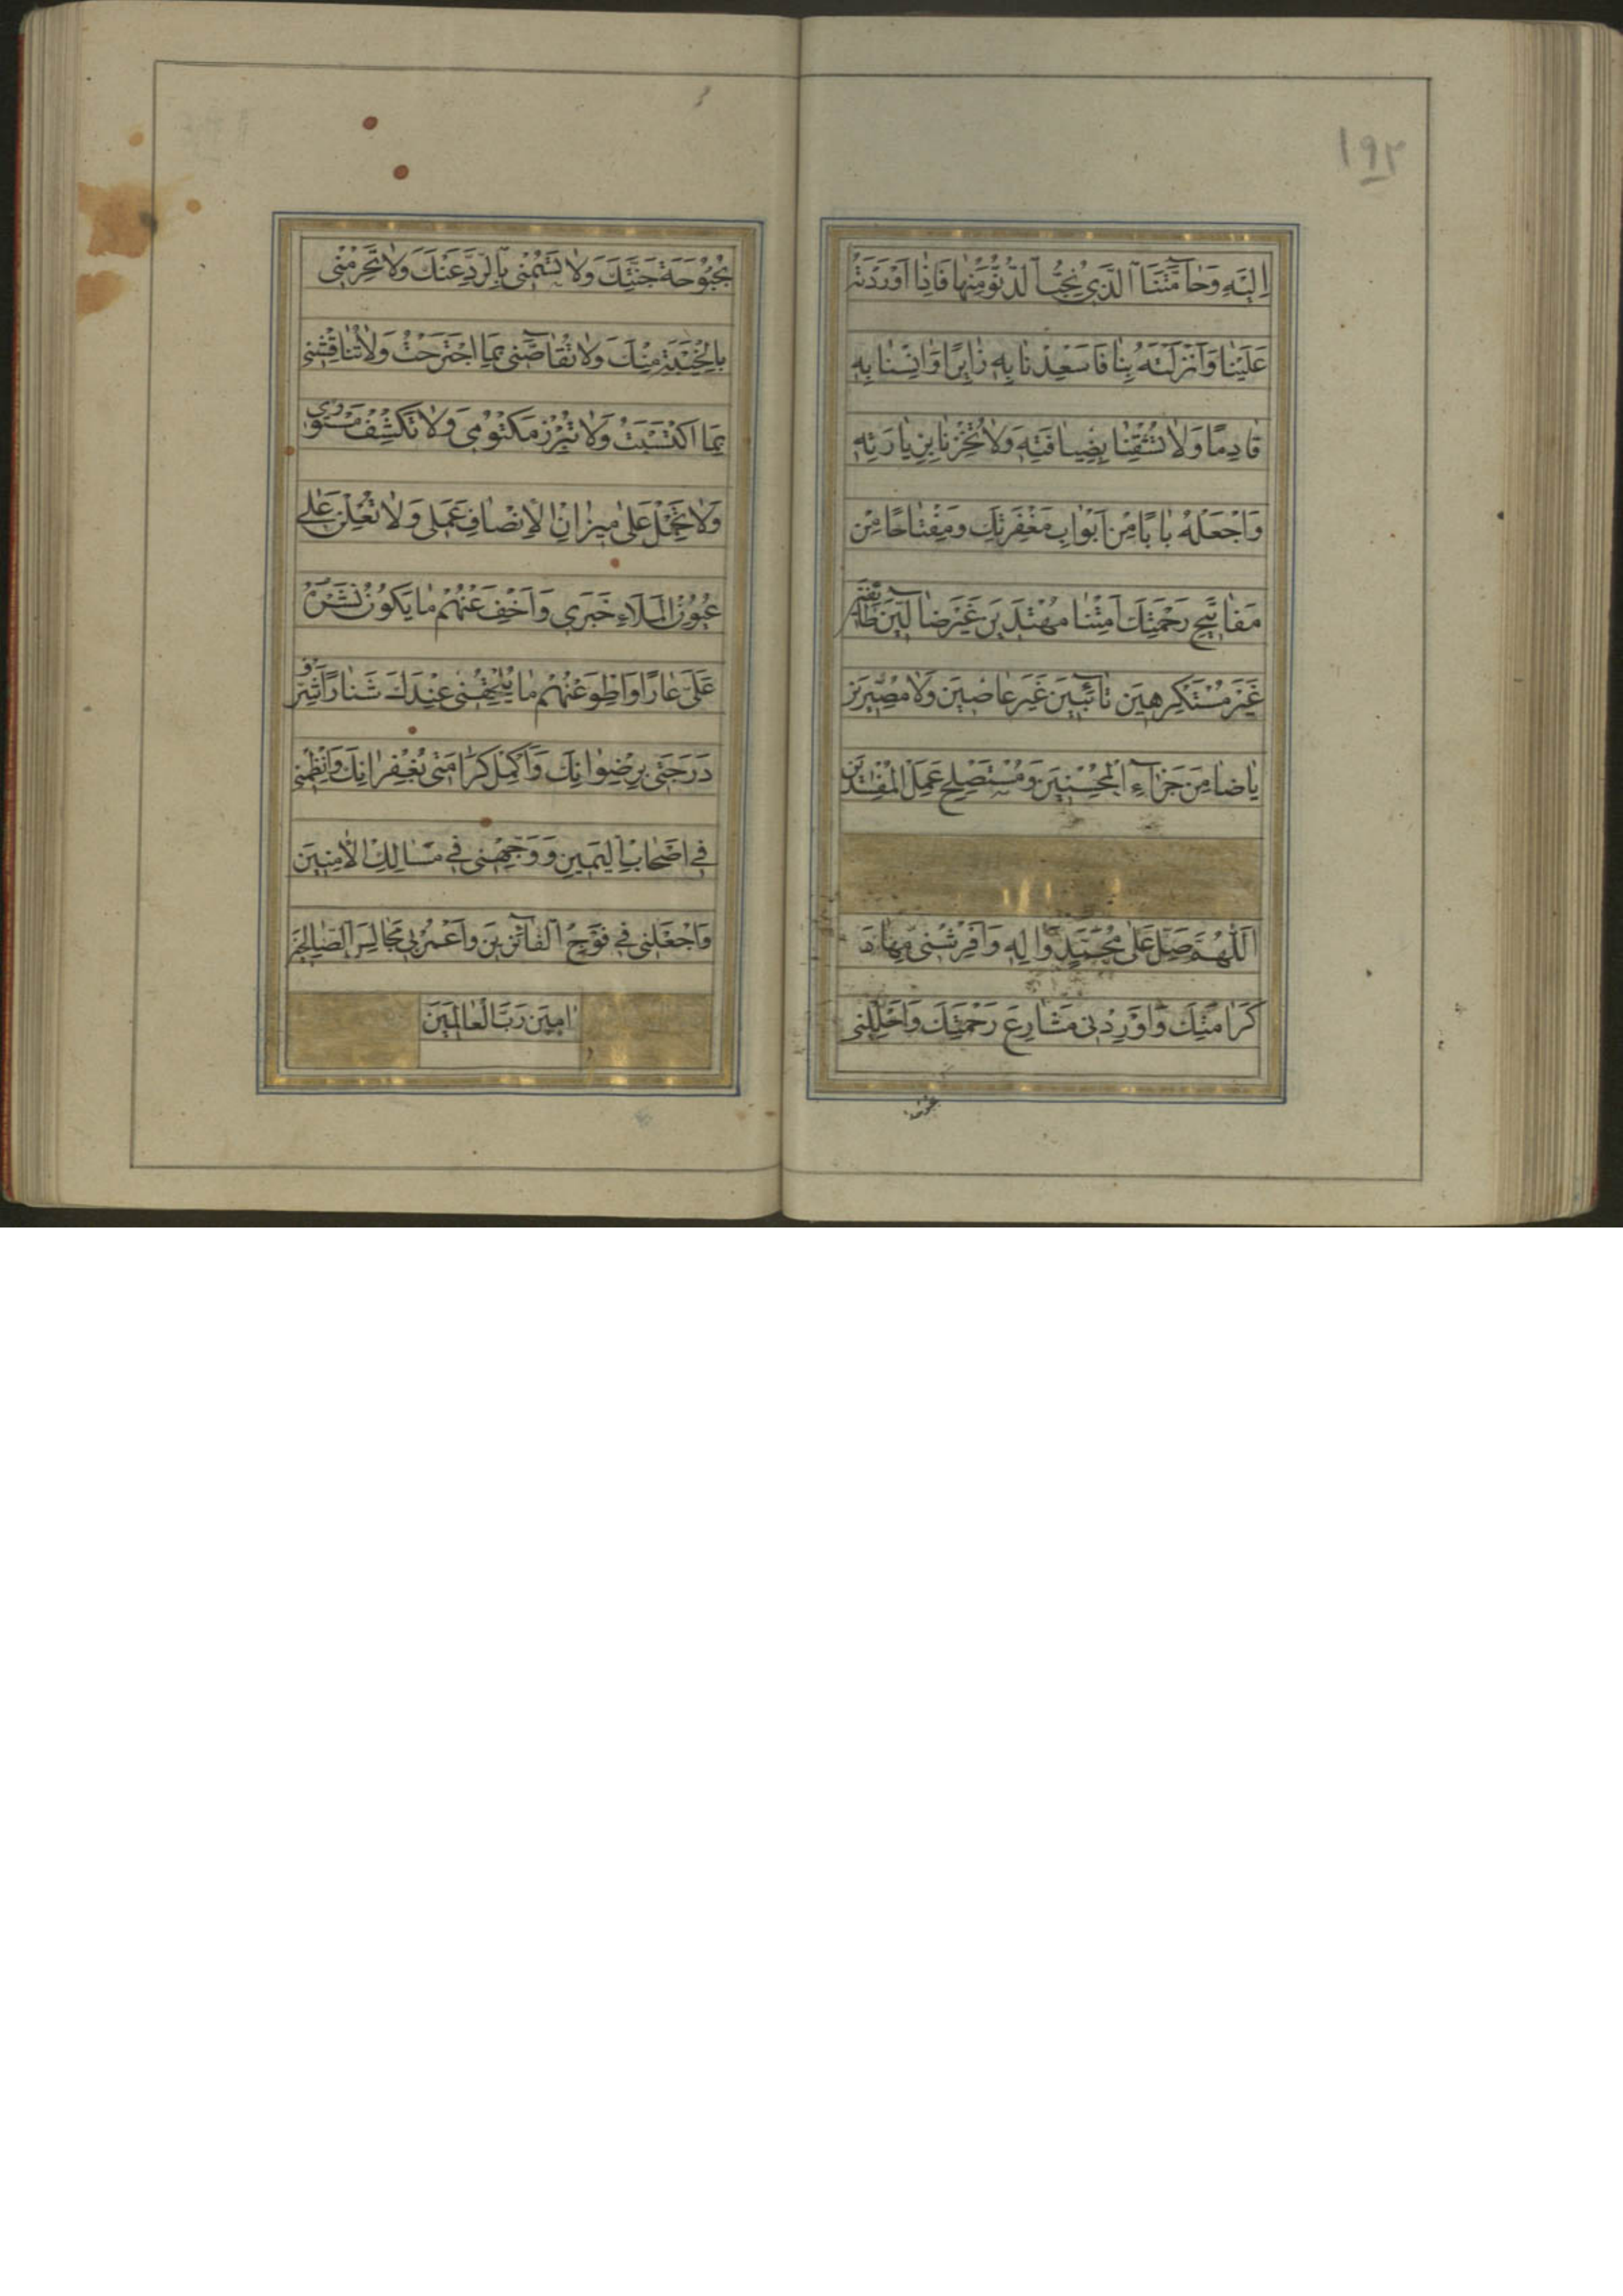 ١٩٢
اِلَيْهِ وَحٰامَّتَنَا الَّذِي نُحِبُّ الدُّنُوَّ مِنْهٰا فَاِذٰا اَوْرَدْتَهُ
عَلَيْنٰا وَاَنْزَلْتَهُ بِنٰا فَاَسْعِدْنٰا بِهِ زٰايِرًا وَاٰنِسْنٰا بِهِ
قٰادِمًا وَلٰا تُشْقِنٰا بِضِيٰافَتِهِ وَلٰا تُخْزِنٰا بِزِيٰارَتِهِ
وَاجْعَلْهُ بٰابًا مِنْ اَبْوٰابِ مَغْفِرَتِكَ وَمِفْتٰاحًا مِنْ
مَفٰاتِيحِ رَحْمَتِكَ اَمِتْنٰا مُهْتَدِينَ غَيْرَ ضٰالِّينَ طٰائِعِينَ
غَيْرَ مُسْتَكْرِهِينَ تٰائِبِينَ غَيْرَ عٰاصِينَ وَلٰا مُصِرِّينَ
يٰا ضٰامِنَ جَزٰآءِ الْمُحْسِنِينَ وَمُسْتَصْلِحَ عَمَلِ الْمُفْسِدِينَ
اَللّٰهُمَّ صَلِّ عَلٰى مُحَمَّدٍ وَاٰلِهِ وَافْرِشْنِى مِهٰادَ
كَرٰامَتِكَ وَاَوْرِدْنِى مَشٰارِعَ رَحْمَتِكَ وَاَحْلِلْنِى
بُحْبُوحَةَ جَنَّتِكَ وَلٰا تَسُمْنِى بِالرَّدِّ عَنْكَ وَلٰا تَحْرِمْنِى
بِالْخَيْبَةِ مِنْكَ وَلٰا تُقٰاصَّنِى بِمَا اجْتَرَحْتُ وَلٰا تُنٰاقِشْنِى
بِمَا اكْتَسَبْتُ وَلٰا تُبْرِزْ مَكْتُومِى وَلٰا تَكْشِفْ مَسْتُورِى
وَلٰا تَحْمِلْ عَلٰى مِيزٰانِ الْاِنْصٰافِ عَمَلِى وَلٰا تُعْلِنْ عَلٰى
عُيُونِ الْمَلَاءِ خَبَرِى وَاَخْفِ عَنْهُمْ مٰا يَكُونُ نَشْرُهُ
عَلَىَّ عٰارًا وَاطْوِ عَنْهُمْ مٰا يُلْحِقُنِى عِنْدَكَ شَنٰارًا شَرِّفْ
دَرَجَتِى بِرِضْوٰانِكَ وَاَكْمِلْ كَرٰامَتِى بِغُفْرٰانِكَ وَانْظِمْنِى
فِى اَصْحٰابِ الْيَمِينِ وَوَجِّهْنِى فِى مَسٰالِكِ الْاٰمِنِينَ
وَاجْعَلْنِى فِى فَوْجِ الْفٰائِزِينَ وَاعْمُرْ بِى مَجٰالِسَ الصّٰالِحِينَ
اٰمِينَ رَبَّ الْعٰالَمِينَ